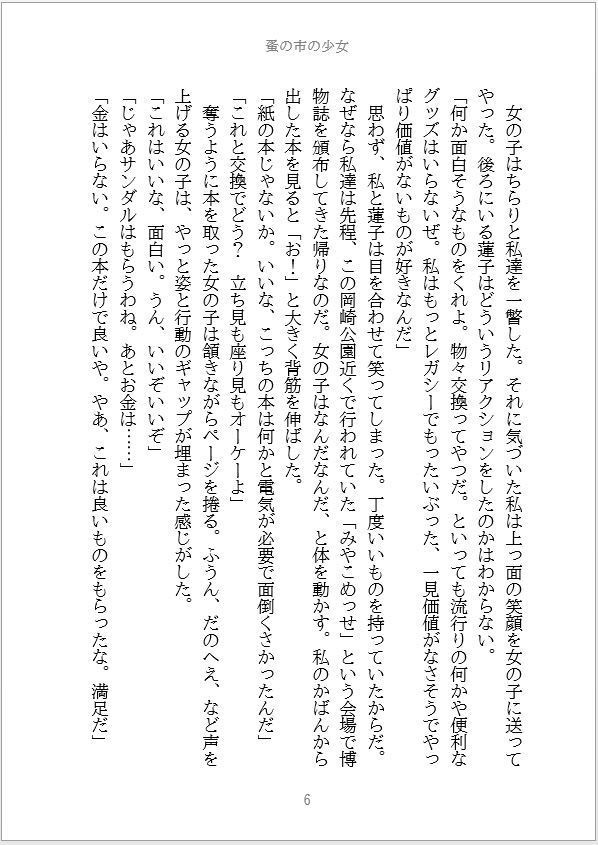 蚤の市の少女
　女の子はちらりと私達を一瞥した。それに気づいた私は上っ面の笑顔を女の子に送って
やった。後ろにいる蓮子はどういうリアクションをしたのかはわからない。
「何か面白そうなものをくれよ。物々交換ってやつだ。といっても流行りの何かや便利な
グッズはいらないぜ。私はもっとレガシーでもったいぶった、一見価値がなさそうでやっ
ぱり価値がないものが好きなんだ」
　思わず、私と蓮子は目を合わせて笑ってしまった。丁度いいものを持っていたからだ。
なぜなら私達は先程、この岡崎公園近くで行われていた「みやこめっせ」という会場で博
物誌を頒布してきた帰りなのだ。女の子はなんだなんだ、と体を動かす。私のかばんから
出した本を見ると「お！」と大きく背筋を伸ばした。
「紙の本じゃないか。いいな、こっちの本は何かと電気が必要で面倒くさかったんだ」
「これと交換でどう？　立ち見も座り見もオーケーよ」
　奪うように本を取った女の子は頷きながらページを捲る。ふうん、だのへえ、など声を
上げる女の子は、やっと姿と行動のギャップが埋まった感じがした。
「これはいいな、面白い。うん、いいぞいいぞ」
「じゃあサンダルはもらうわね。あとお金は……」
「金はいらない。この本だけで良いや。やあ、これは良いものをもらったな。満足だ」
6